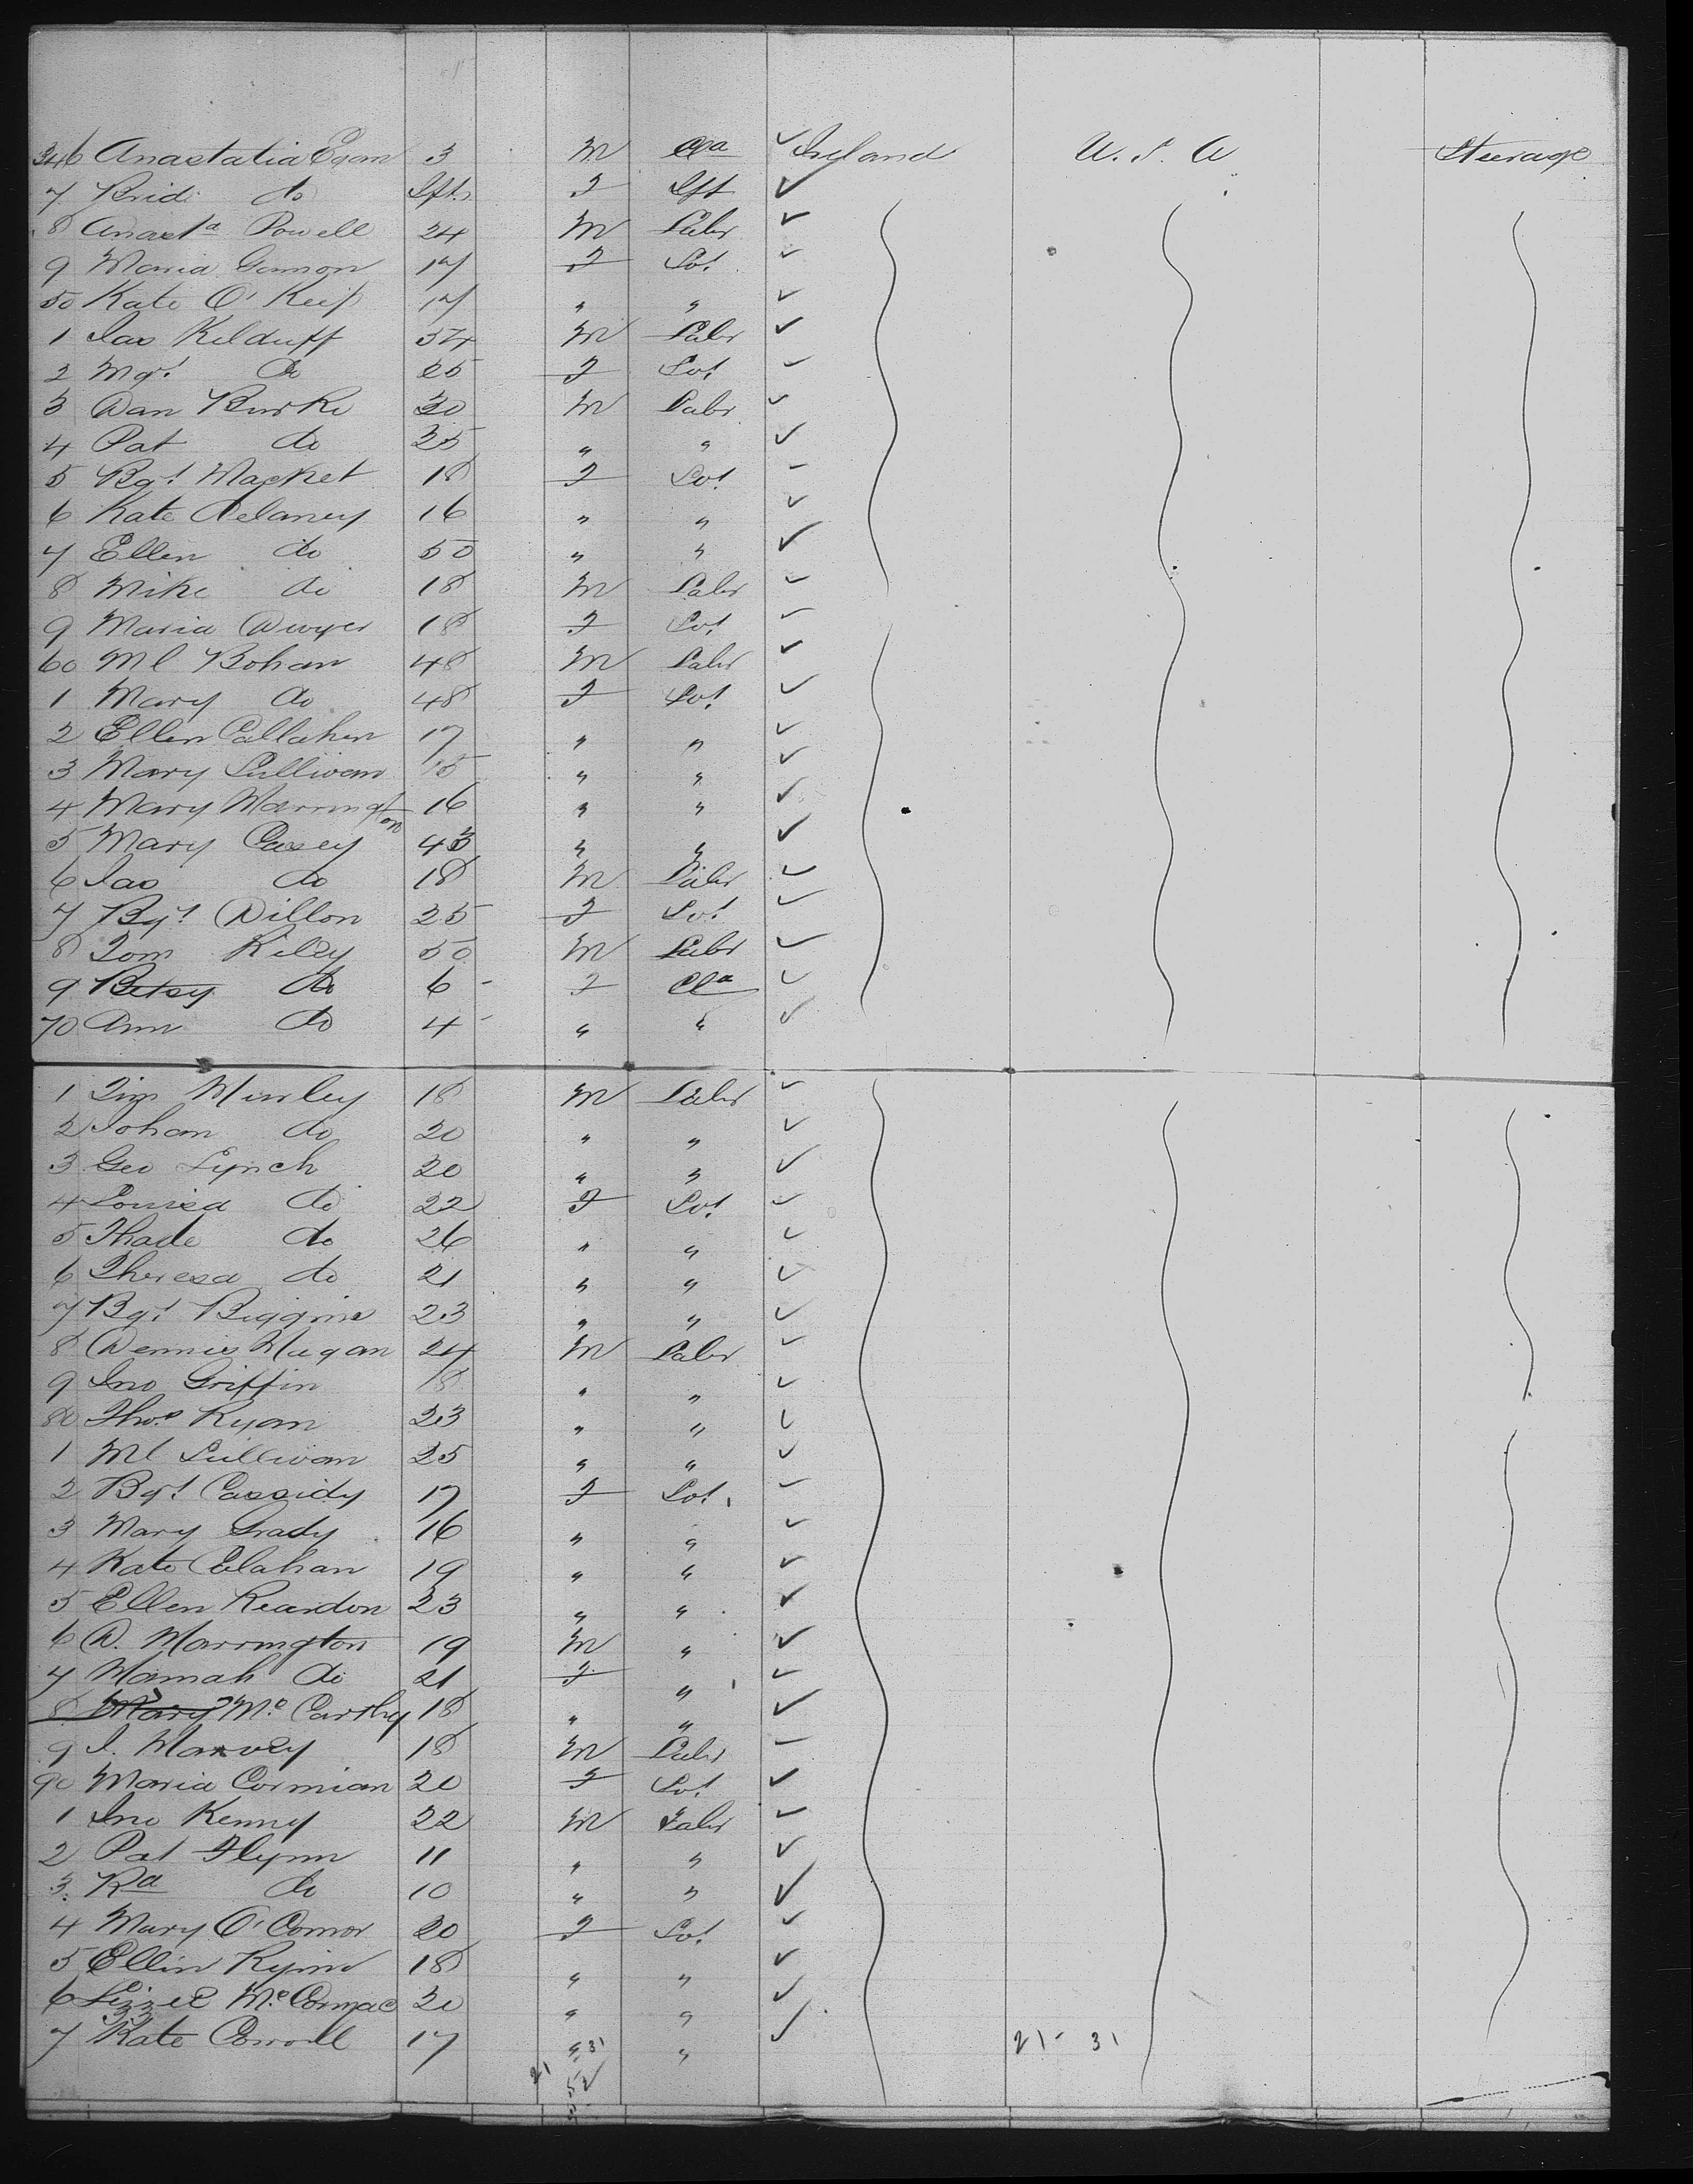 346 Anastatia Egan 3 M Cla Ireland U.S.A Steerage
7 Brid do Ift. F Ift
8 Anasta Powell 24 M Labr
9 Maria Gannon 17 F Sot
50 Kate O'Keif 17 " "
1 Jas Kilduff 34 M Labr
2 Mgt do 25 F Sot
3 Dan Burke 30 M Labr
4 Pat do 25 " "
5 Bgt Macket 18 F Sot
6 Kate Delaney 16 " "
7 Ellen do 50 " "
8 Mike do 18 M Labr
9 Maria Dwyer 18 F Sot
60 Ml Bohan 48 M Labr
1 Mary do 48 F Sot
2 Ellen Callahen 17 " "
3 Mary Sullivan 15 " "
4 Mary Warrington 16 " "
5 Mary Casey 43 " "
6 Jas do 18 M Labr
7 Bgt Dillon 25 F Sot
8 Tom Riley 50 M Labr
9 Betsy do 6 F Cla
70 Ann do 4 " "
1 Tim Murley 18 M Labr
2 Johan do 20 " "
3 Geo Lynch 20 " "
4 Louisa do 22 F Sot
5 Thade do 26 " "
6 Theresa do 21 " "
7 Bgt Biggins 23 " "
8 Dennis Hagan 24 M Labr
9 Jno Griffin 18 " "
80 Thos Ryan 23 " "
1 Ml Sullivan 25 " "
2 Bgt Cassidy 17 F Sot
3 Mary Grady 16 " "
4 Kate Clahan 19 " "
5 Ellen Reardon 23 " "
6 D. Harrington 19 M "
7 Hannah do 21 F "
8 Mary McCarthy 18 " "
9 J. Harvey 18 M Labr
90 Maria Cormian 20 F Sot
1 Jno Kenny 22 M Labr
2 Pat Flynn 11 " "
3 Rd do 10 " "
4 Mary O'Connor 20 F Sot
5 Ellin Rynn 18 " "
6 Lizzie McCormac 20 " "
7 Kate Carroll 17 " 31 " 21 - 31
21 52